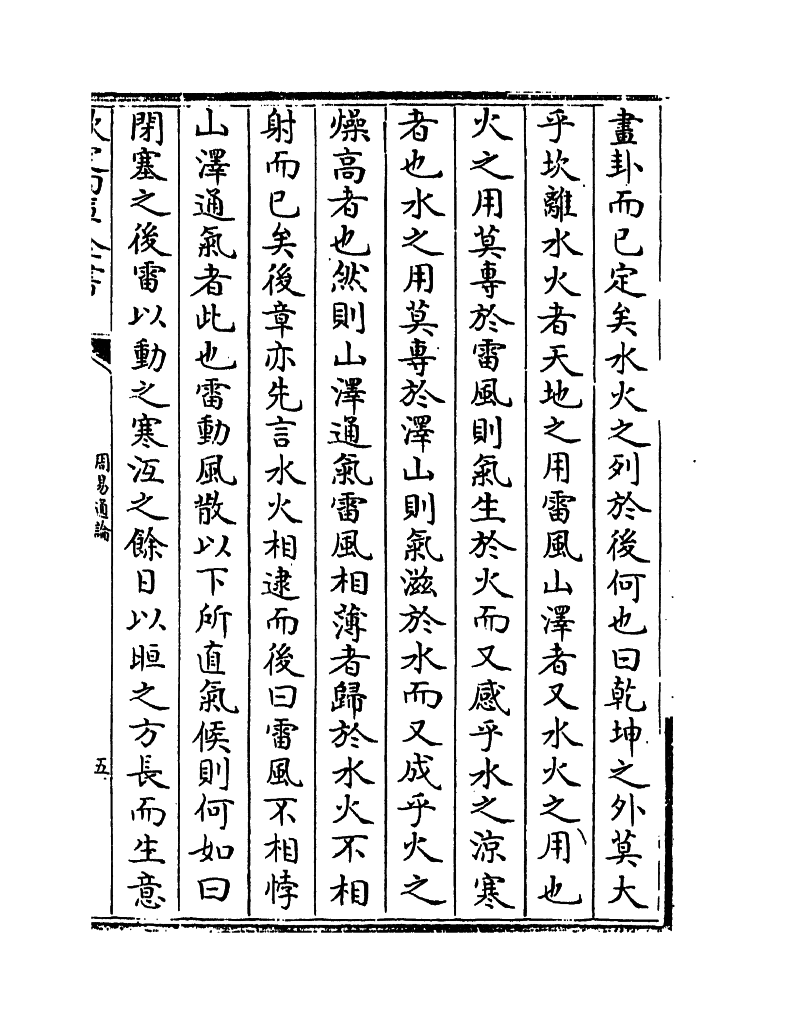 畫卦而已定矣水火之列於後何也曰乾坤之外莫大
乎坎離水火者天地之用雷風山澤者又水火之用也
火之用莫專於雷風則氣生於火而又感乎水之涼寒
者也水之用莫專於澤山則氣滋於水而又成乎火之
燥高者也然則山澤通氣雷風相薄者歸於水火不相
射而已矣後章亦先言水火相逮而後曰雷風不相悖
山澤通氣者此也雷動風散以下所直氣候則何如曰
閉塞之後雷以動之寒沍之餘日以晅之方長而生意
周易通論
五